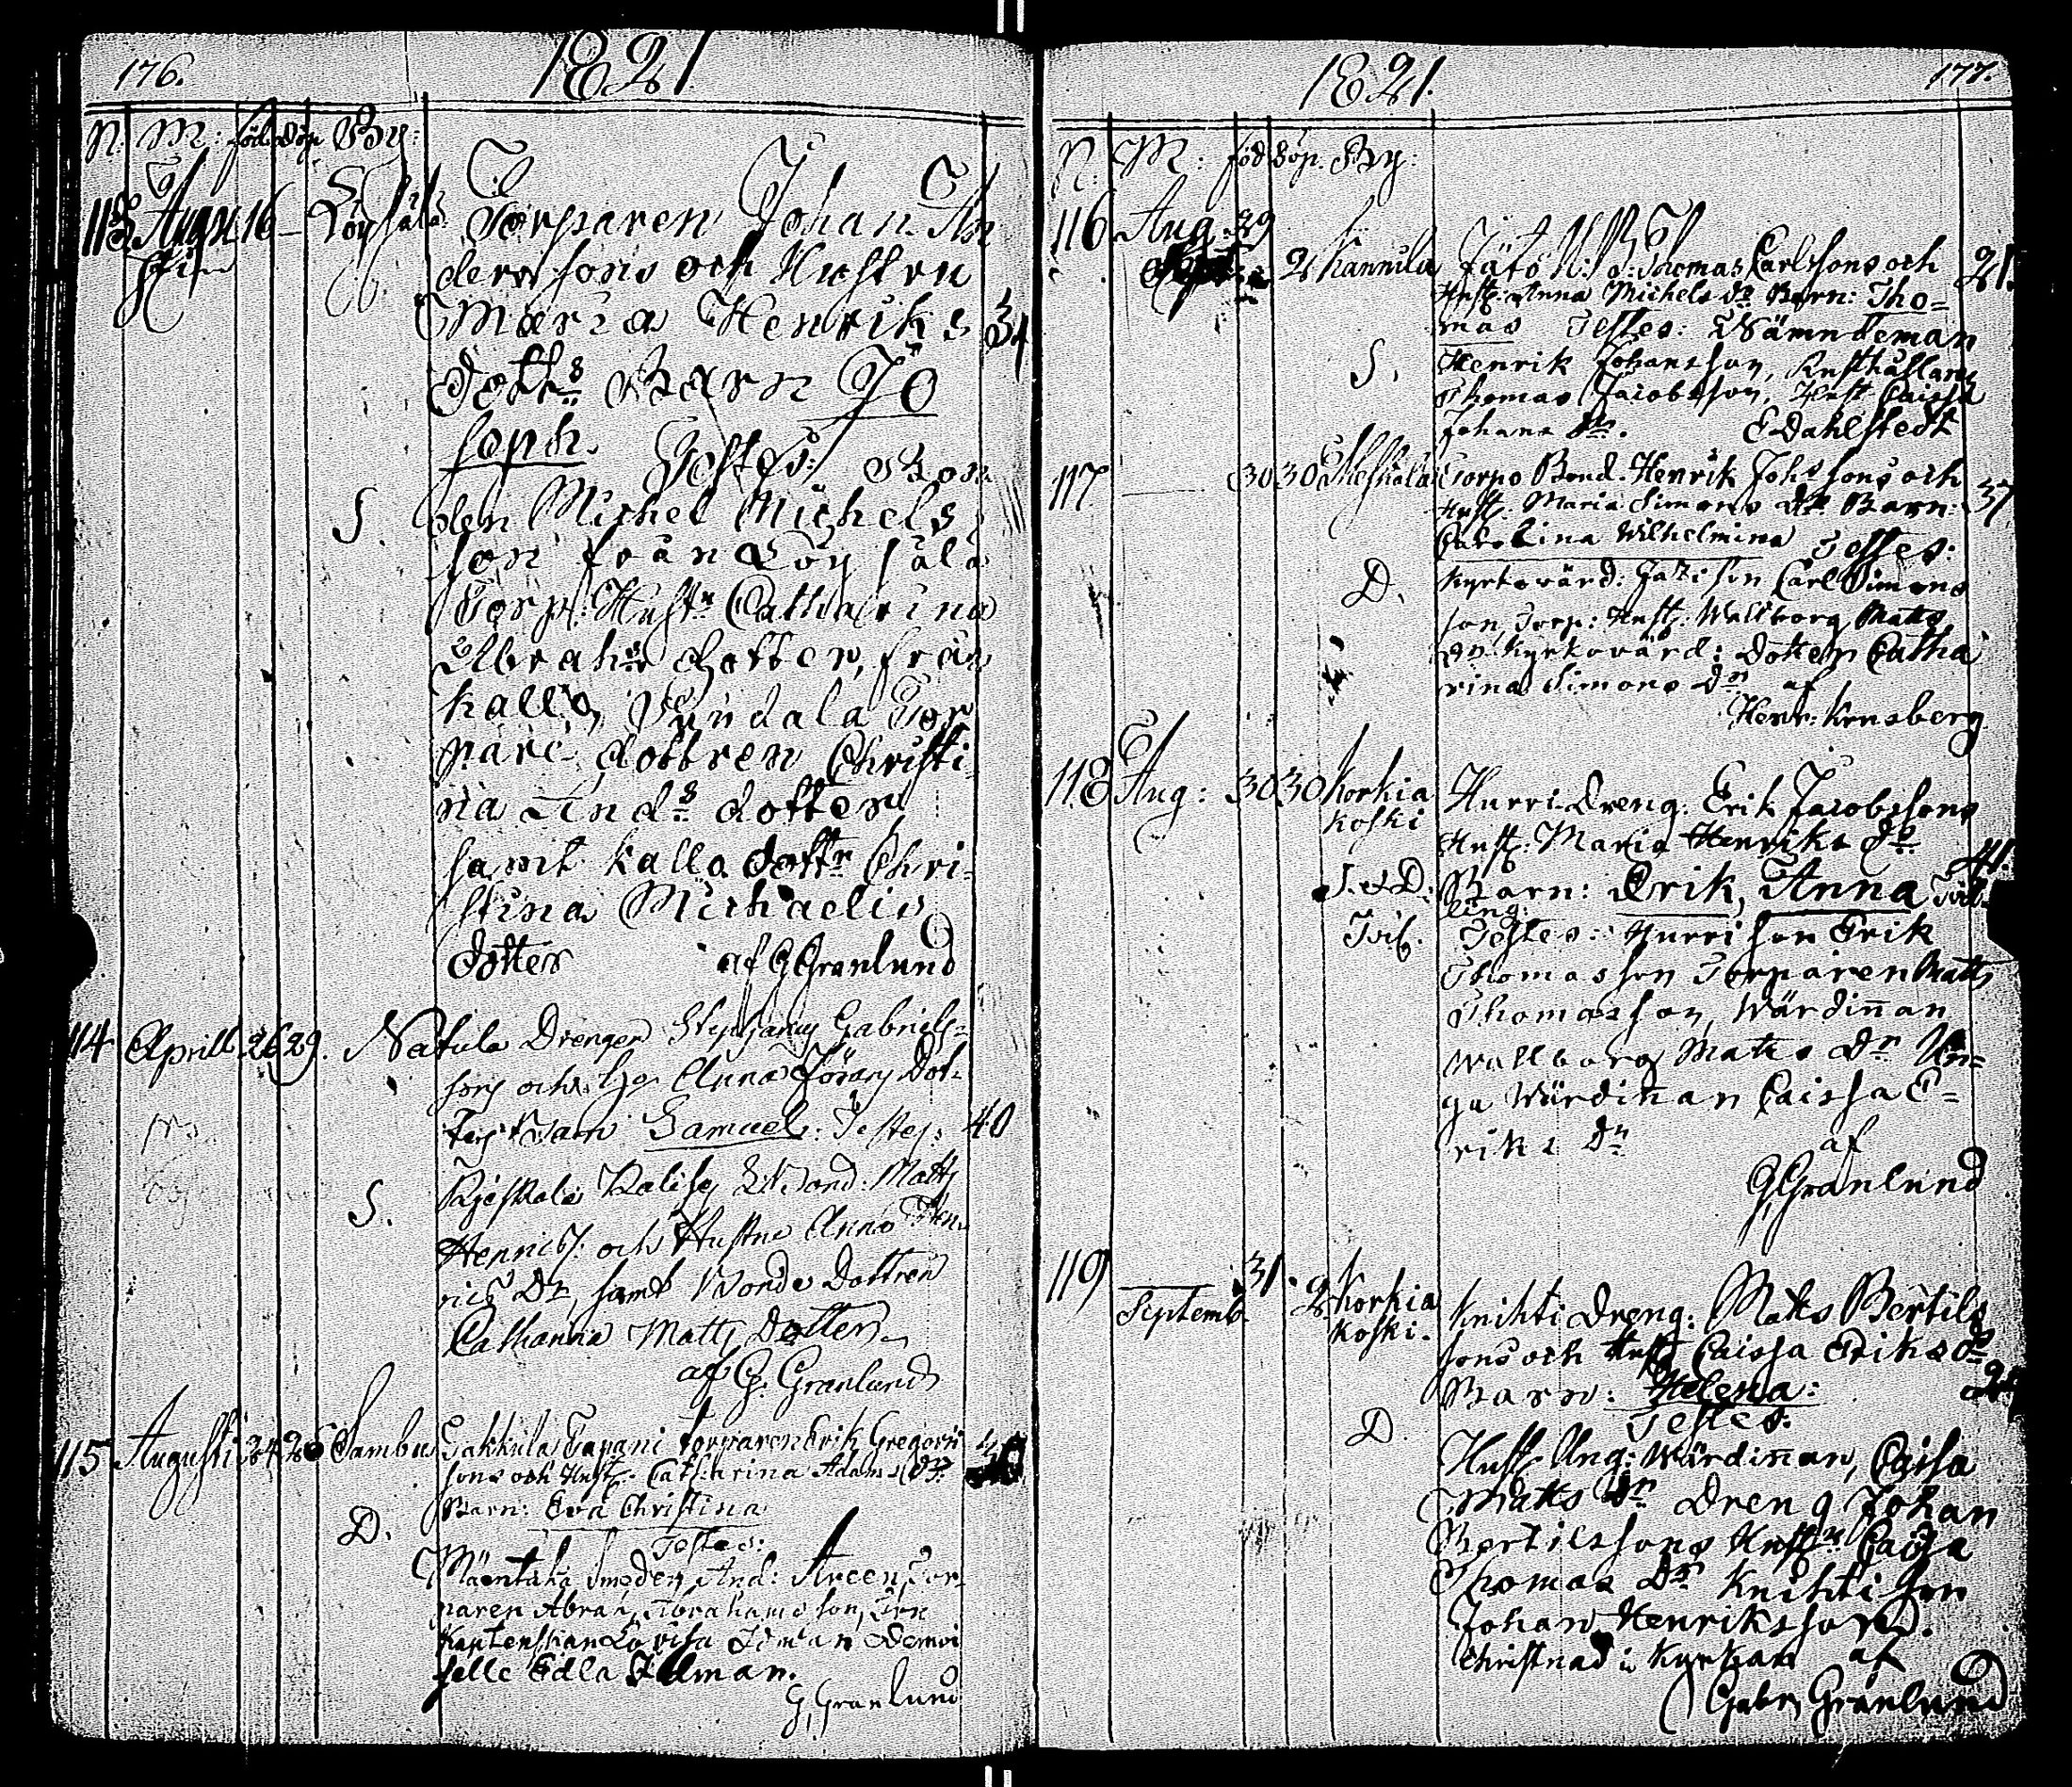 176.
1821.
N: M: föd. döp By:
113 Augu 16 – Löysälä Torparen Johan An
derssons och Hustru
Maria Henriks 34
Dottrs Barn Jo
seph. Testes: Bon
S. den Michel Michels
son från Löysälä
Torp: Hustr Catharina
Abrahms dotter, från
Kallo, Tor
pare dottren Christi
na And:s dotter
samt Kallo dottr Chri-
stina Michaelis
dotter af G Granlund
114 Aprill 26 29. Natula Drengen Stephany Gabriels-
sons och h:o Anna Görans Dot-
ters Barn Samuel: Testes: 40
S. Bond: Matts
Henrics: och Hustru Anna Hen
rics Dr, samt Bonde Dottren
Catharina Matts Dotter
af G. Granlund
115 Augusti 24 26 Sambu Sakkula Tapani Torparen Erik Gregori
sons och Hust: Catharina Adams dr.
Barn: Eva Christina
D. Testes:
Mäentaka Smeden And: Areen, Tor-
paren Abrah, Abrahamsson, Fru
Kaptenskan Lovisa Idman Demoi
selle Edla Idman.
G. Granlund
1821.
177.
N. M: föd döp. By:
116 Aug: 29
Sept: 2 Kannila Jätö Thomas Carlssons och 21.
Hust: Anna Michels dr Barn: Tho-
mas Testes: Nämndeman
S. Henrik Johansson, Rusthållare
Thomas Jacobsson, Hust Caissa
Johans dr. E Dahlstedt
117 — 30 30 Torpo Bond. Henrik Johssons och
Hust: Maria Simons dr Barn: 37
Carolina Wilhelmina Testes:
D. Kyrkovärd: son Carl Simons
son Torp: Hust: Wallborg Matts
dr Kyrkovärd: Dotten Catha
rina Simons Dr af
Henr: Krnsberg
118 Aug: 30 30 Korkia
koski
Hurri Dreng: Erik Jacobssons
Hust: Maria Henriks dr. 41.
S. et D. Barn: Erik, Anna Tvil-
ling:
Tvil. Testes: Hurri son Erik
Thomasson Torparen Matts
Thomasson, Wärdinnan
Wallborg Matts Dr Un-
ga Wärdinnan Caissa E-
riks Dr af
G. Granlund
119 — 31.
Septemb. 2 Korkia
koski.
Knihti Dreng: Matts Bertils
sons och Hust Caissa Eriks dr
Barn: Helena:
Testes:
D. Hust Ung: Wärdinnan, Caisa
Matts Dr Dreng Johan
Bertilssons Hustr Caisa
Thomas Dr Knihti son
Johan Henriksson.
Christnad i Kyrkan af
Gabr Granlund